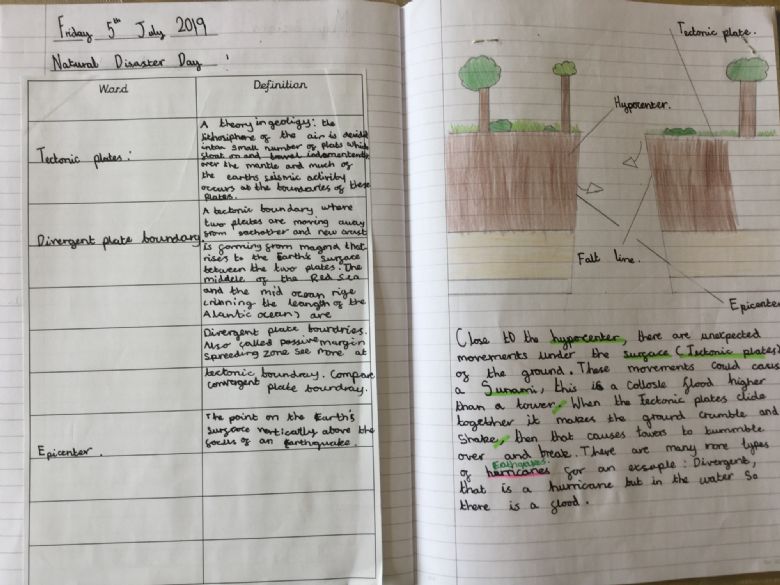 Friday 5th July 2019
Natural Disaster Day :
Word
Definition
Tectonic plates:
A theory in geoligy: the
lithosphere of the air is devide
intoa small number of plats which
float on and travel indamentently
over the mantle and much of
the earths seismic activity
occurs at the boundaries of these
plates.
Divergent plate boundary
A tectonic boundary where
two plates are moving away
from eachother and new crust
is forming from magma that
rises to the Earth's surface
between the two plates. The
middle of the Red Sea
and the mid ocean rige
(running the leangth of the
Alantic ocean) are
Divergent plate boundries.
Also called passive margin
spreeding zone see more at
tectonic boundray. Compare
convergent plate boundray.
Epicenter.
The point on the Earth's
surface vertically above the
focus of an Earthquake.
Tectonic plate.
Hypocenter.
Falt line.
Epicenter
Close to the hypocenter, there are unexpected
movements under the surface (Tectonic plates)
of the ground. These movements could cause
a Sunami, this is a collosle flood higher
than a tower. When the Tectonic plates clide
together it makes the ground crumble and
shake, then that causes towers to tummble
over and break. There are many more types
Earthquakes.
of hurricanes for an exsaple: Divergent,
that is a hurricane but in the water so
there is a flood.